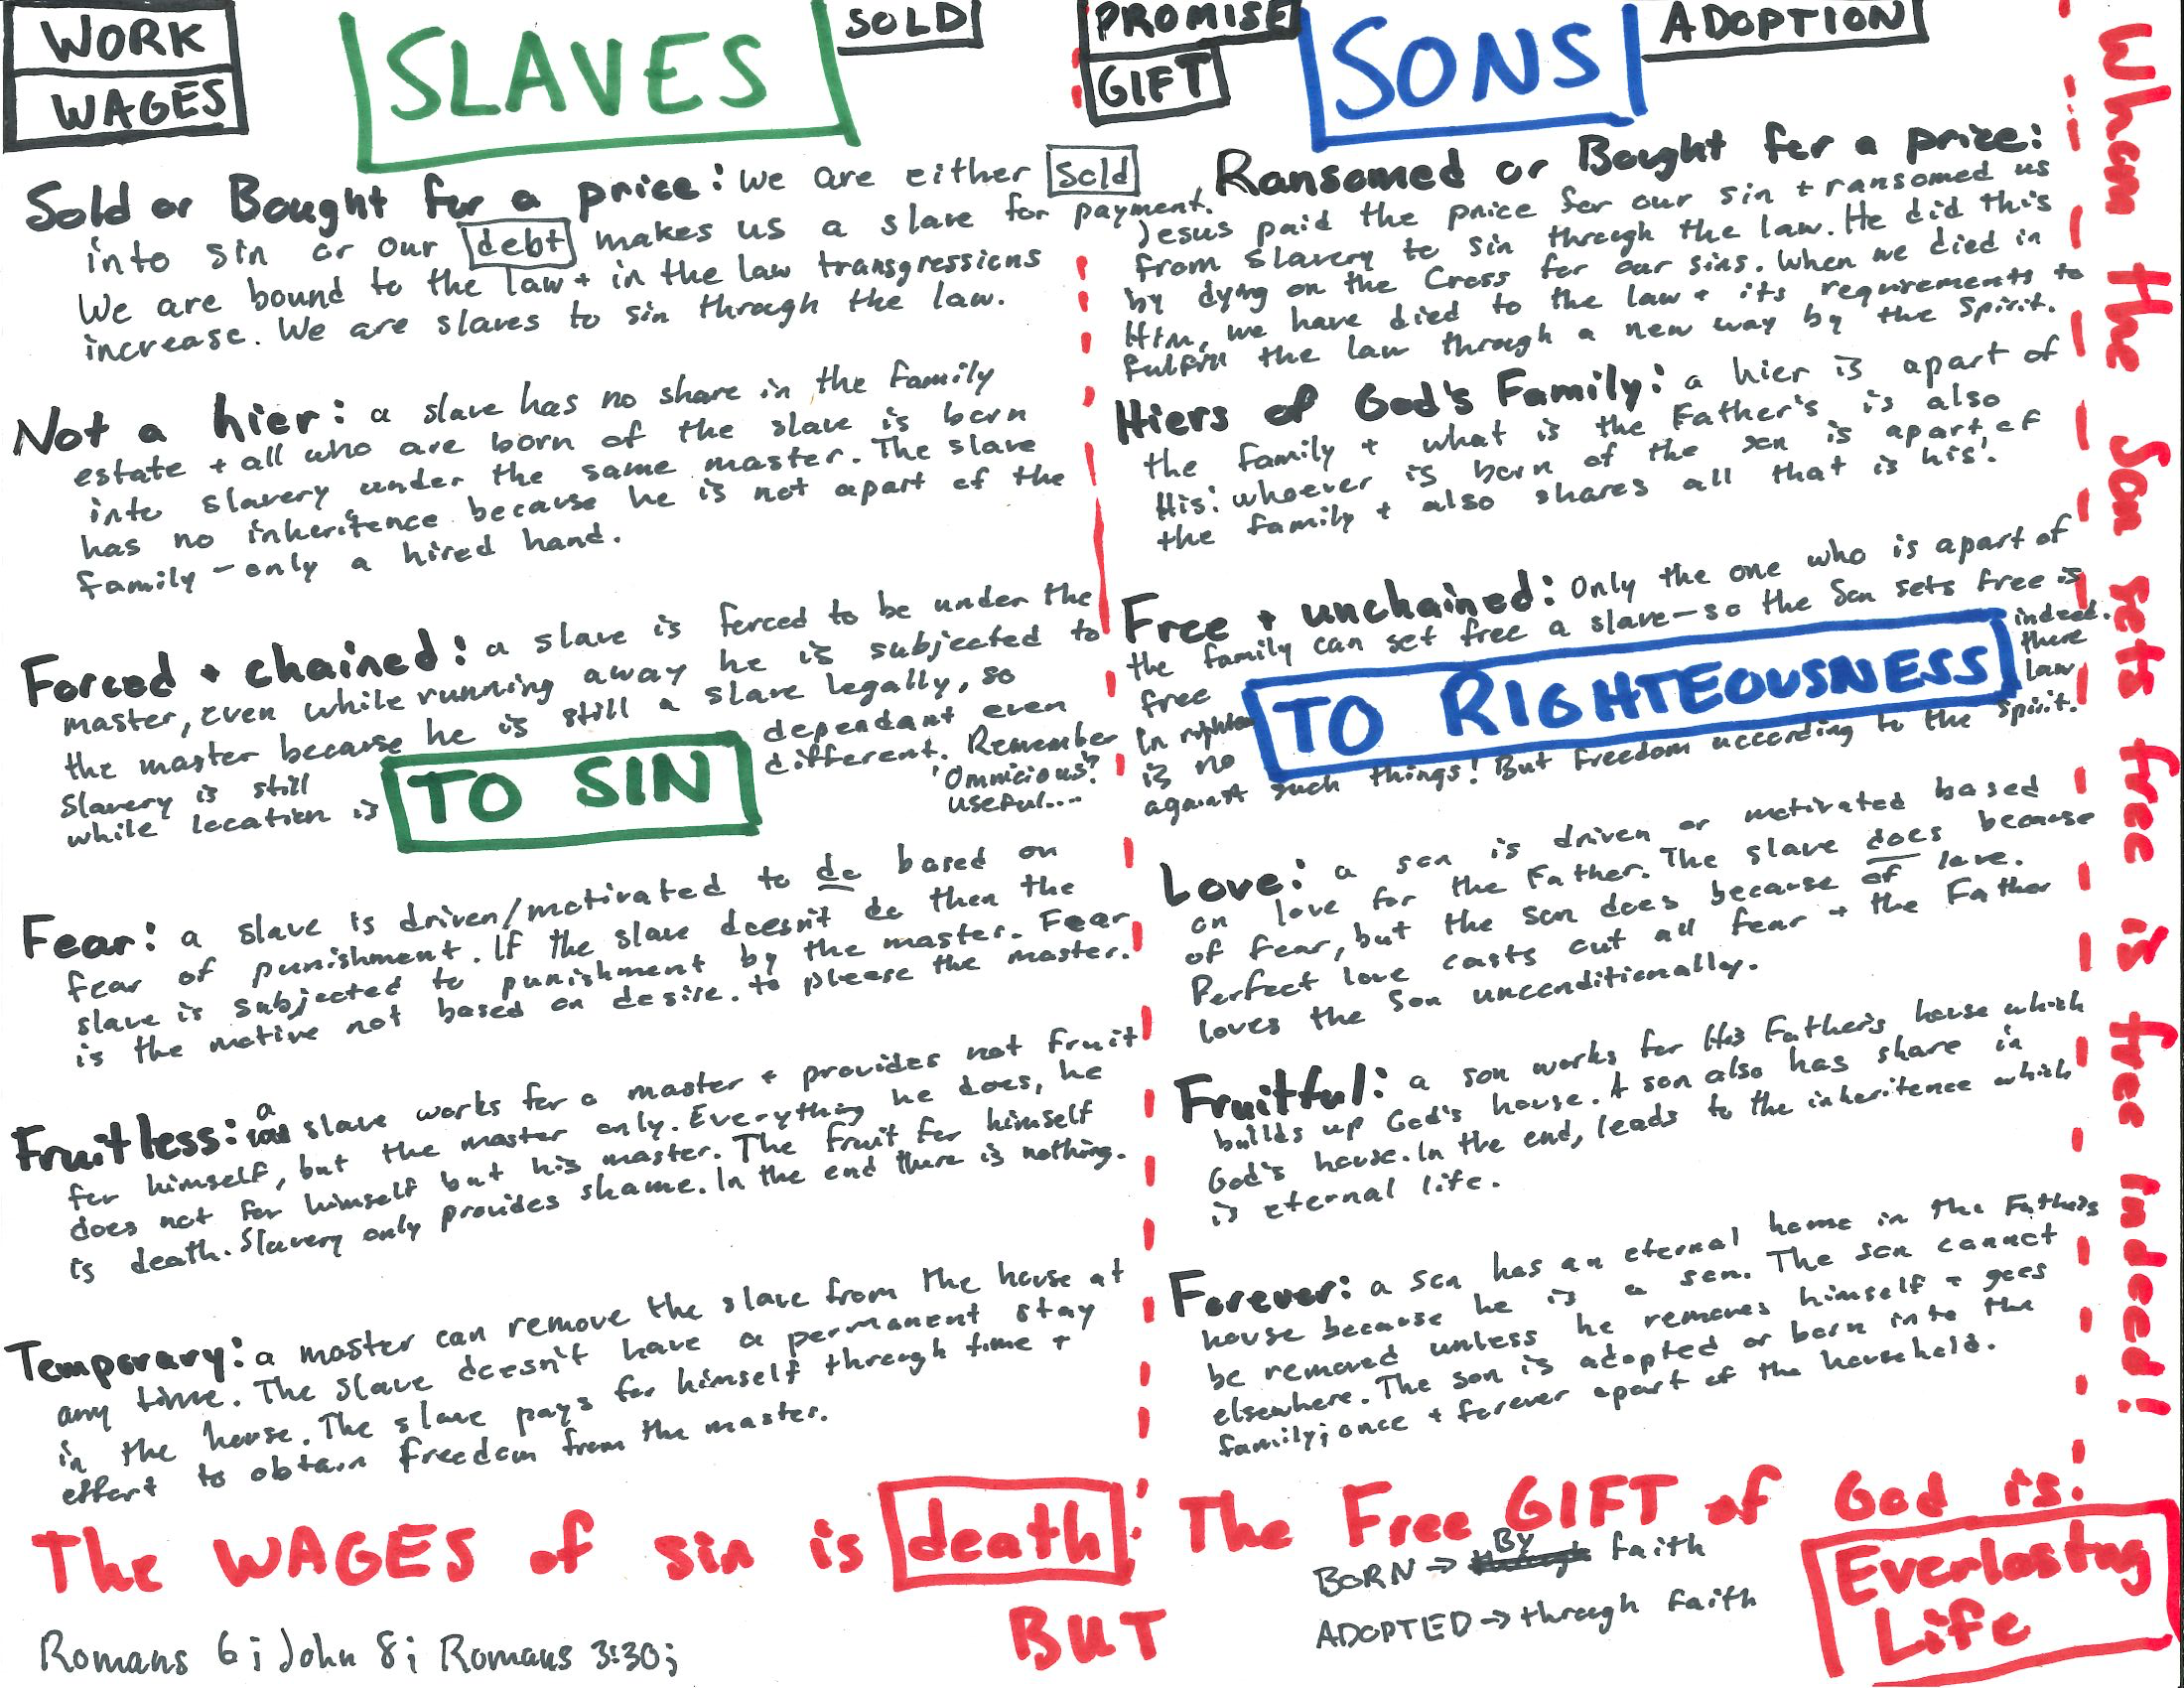 WORK
WAGES
SLAVES
SOLD
Sold or Bought for a price: we are either sold
into sin or our debt makes us a slave for payment.
We are bound to the law + in the law transgressions
increase. We are slaves to sin through the law.
Not a hier: a slave has no share in the family
estate + all who are born of the slave is born
into slavery under the same master. The slave
has no inheritence because he is not apart of the
family - only a hired hand.
Forced + chained: a slave is forced to be under the
master, even while running away he is subjected to
the master because he is still a slave legally, so
Slavery is still dependant even
while location is different. Remember
'Omnicious?'
useful....
TO SIN
Fear: a slave is driven/motivated to do based on
fear of punishment. If the slave doesn't do then the
slave is subjected to punishment by the master. Fear
is the motive not based on desire. to please the master.
Fruitless: a slave works for a master + provides not fruit
for himself, but the master only. Everything he does, he
does not for himself but his master. The fruit for himself
is death. Slavery only provides shame. In the end there is nothing.
Temporary: a master can remove the slave from the house at
any time. The slave doesn't have a permanent stay
in the house. The slave pays for himself through time +
effort to obtain freedom from the master.
The WAGES of sin is death:
BUT
Romans 6; John 8; Romans 3:30;
PROMISE
GIFT
SONS
ADOPTION
Ransomed or Bought for a price:
Jesus paid the price for our sin + ransomed us
from slavery to sin through the law. He did this
by dying on the Cross for our sins. When we died in
Him, we have died to the law + its requirements to
fulfill the law through a new way by the Spirit.
Hiers of God's Family: a hier is apart of
the family + what is the Father's is also
His: whoever is born of the son is apart of
the family + also shares all that is his!
Free + unchained: Only the one who is apart of
the family can set free a slave - so the Son sets free is
free indeed.
In there
is no law
against such things! But freedom according to the Spirit.
TO RIGHTEOUSNESS
Love: a son is driven or motivated based
on love for the Father. The slave does because
of fear, but the son does because of love.
Perfect love casts out all fear + the Father
loves the Son unconditionally.
Fruitful: a son works for His Father's house which
builds up God's house. A son also has share in
God's house. In the end, leads to the inheritence which
is eternal life.
Forever: a son has an eternal home in the Father's
house because he is a son. The son cannot
be removed unless he removes himself + goes
elsewhere. The son is adopted or born into the
family; once + forever apart of the household.
The Free GIFT of God is:
BORN → BY faith
ADOPTED → through faith
Everlasting
Life
When the Son sets free is free indeed!